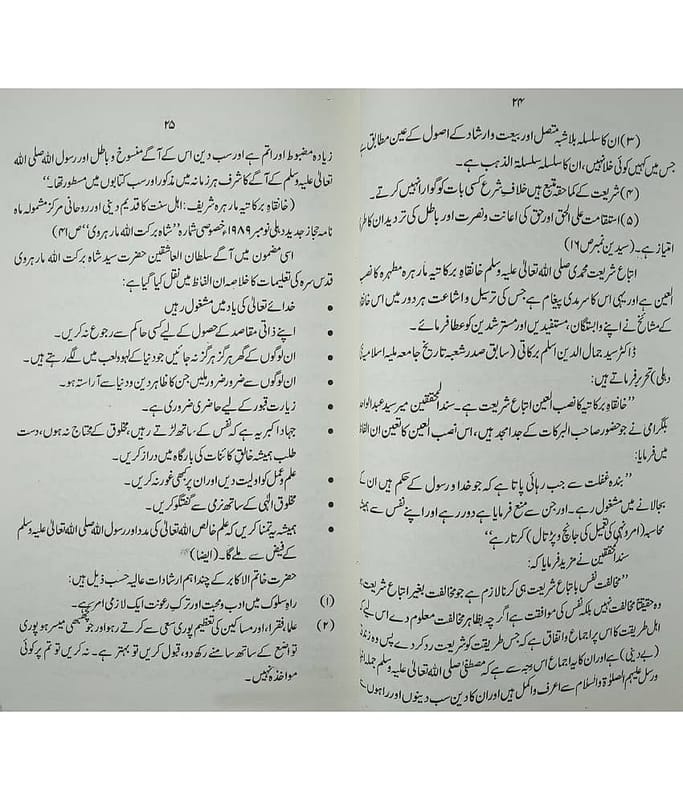 ۲۴
(۳) ان کا سلسلہ بلاشبہ متصل اور بیعت وارشاد کے اصول کے عین مطابق ہے
جس میں کہیں کوئی خلا نہیں، ان کا سلسلہ سلسلۃ الذہب ہے۔
(۴) شریعت کے کما حقہ متبع ہیں خلاف شرع کسی بات کو گوارا نہیں کرتے۔
(۵) استقامت علی الحق اور حق کی اعانت و نصرت اور باطل کی تردید ان کا طرۂ
امتیاز ہے۔ (سیدین نمبر ص ۱۶)
اتباع شریعت محمدی صلی اللہ تعالیٰ علیہ وسلم خانقاہ برکاتیہ مارہرہ مطہرہ کا نصب
العین ہے اور یہی اس کا سرمدی پیغام ہے جس کی ترسیل و اشاعت ہر دور میں اس خانقاہ
کے مشائخ نے اپنے وابستگان، مستفیدین اور مسترشدین کو عطا فرمائے۔
ڈاکٹر سید جمال الدین اسلم برکاتی (سابق صدر شعبۂ تاریخ جامعہ ملیہ اسلامیہ
دہلی) تحریر فرماتے ہیں:
”خانقاہ برکاتیہ کا نصب العین اتباع شریعت ہے۔ سند المحققین میر سید عبدالواحد
بلگرامی نے جو حضور صاحب البرکات کے جد امجد ہیں، اس نصب العین کا تعین ان الفاظ
میں فرمایا:
”بندہ غفلت سے جب رہائی پاتا ہے کہ جو خدا و رسول کے حکم ہیں ان کے
بجالانے میں مشغول رہے۔ اور جن سے منع فرمایا ہے دور رہے اور اپنے نفس سے ہمیشہ
محاسبہ (امر و نہی کی تعمیل کی جانچ و پڑتال) کرتا رہے“
سند المحققین نے مزید فرمایا کہ:
”مخالفت نفس با تباع شریعت ہی کرنا لازم ہے جو مخالفت بغیر اتباع شریعت
وہ حقیقتاً مخالفت نہیں بلکہ نفس کی موافقت ہے اگر چہ بظاہر مخالفت معلوم دے اس لیے کہ
اہل طریقت کا اس پر اجماع و اتفاق ہے کہ جس طریقت کو شریعت رد کردے پس وہ زندقہ
(بے دینی) ہے اور ان کا یہ اجماع اس وجہ سے ہے کہ مصطفیٰ صلی اللہ تعالیٰ علیہ وسلم جملہ
ورسل علیہم الصلوٰۃ والسلام سے اعرف واکمل ہیں اور ان کا دین سب دینوں اور راہوں
۲۵
زیادہ مضبوط اور اتم ہے اور سب دین اس کے آگے منسوخ و باطل اور رسول اللہ صلی اللہ
تعالیٰ علیہ وسلم کے آگے کا شرف ہر زمانہ میں مذکور اور سب کتابوں میں مسطور تھا۔“
(خانقاہ برکاتیہ مارہرہ شریف: اہل سنت کا قدیم دینی اور روحانی مرکز مشمولہ ماہ
نامہ حجاز جدید دہلی نومبر ۱۹۸۹ء خصوصی شمارہ ”شاہ برکت اللہ مارہروی“ ص ۴۱)
اسی مضمون میں آگے سلطان العاشقین حضرت سید شاہ برکت اللہ مارہروی
قدس سرہ کی تعلیمات کا خلاصہ ان الفاظ میں نقل کیا گیا ہے:
• خدائے تعالیٰ کی یاد میں مشغول رہیں
• اپنے ذاتی مقاصد کے حصول کے لیے کسی حاکم سے رجوع نہ کریں۔
• ان لوگوں کے گھر ہرگز ہرگز نہ جائیں جو دنیا کے لہو ولعب میں لگے رہتے ہیں۔
• ان لوگوں سے ضرور ضرور ملیں جن کا ظاہر دین و دنیا سے آراستہ ہو۔
• زیارت قبور کے لیے حاضری ضروری ہے۔
• جہاد اکبر یہ ہے کہ نفس کے ساتھ لڑتے رہیں، مخلوق کے محتاج نہ ہوں، دست
طلب ہمیشہ خالق کائنات کی بارگاہ میں دراز کریں۔
• علم و عمل کو اولیت دیں اور ان پر کبھی غور نہ کریں۔
• مخلوق الٰہی کے ساتھ نرمی سے گفتگو کریں۔
• ہمیشہ یہ تمنا کریں کہ علم خالص اللہ تعالیٰ کی مدد اور رسول اللہ صلی اللہ تعالیٰ علیہ وسلم
کے فیض سے ملے گا۔ (ایضا)
حضرت خاتم الاکابر کے چند اہم ارشادات عالیہ حسب ذیل ہیں:
(۱) راہ سلوک میں ادب و محبت اور ترک رعونت ایک لازمی امر ہے۔
(۲) علما، فقرا، اور مساکین کی تعظیم پوری سعی سے کرتے رہو اور جو کچھ بھی میسر ہو پوری
تواضع کے ساتھ سامنے رکھ دو، قبول کریں تو بہتر ہے۔ نہ کریں تو تم پر کوئی
مواخذہ نہیں۔